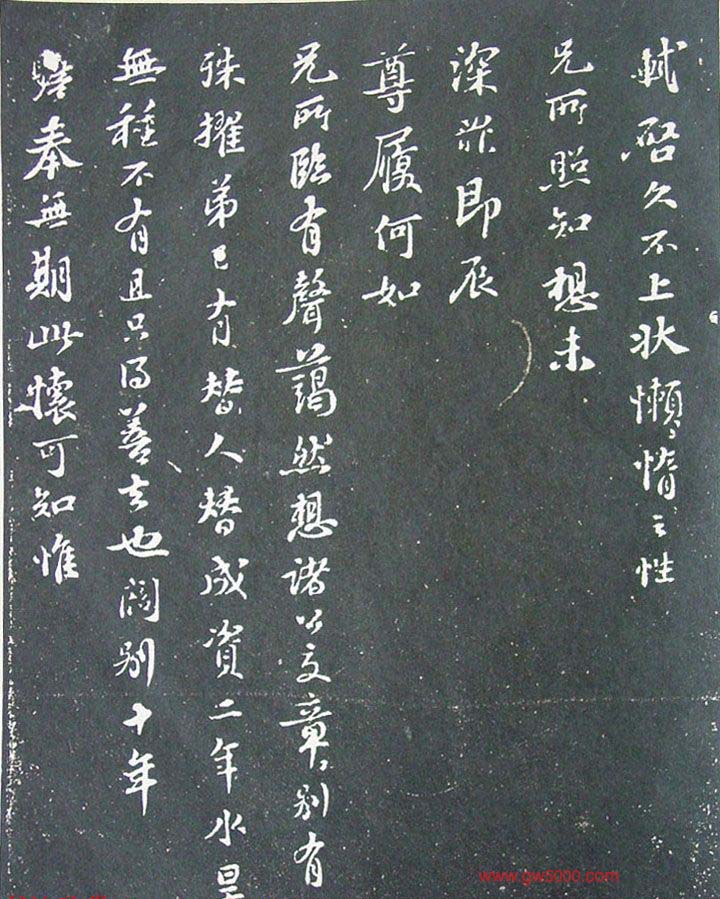 軾啓久不上狀懶惰之性
兄所照知想未
深罪即辰
尊履何如
兄所臨有聲藹然想諸公文章別有
殊擢弟已有替人替成資二年水旱
無種不有且只得善去也闊別十年
奉無期此懷可知惟
www.gw5000.com